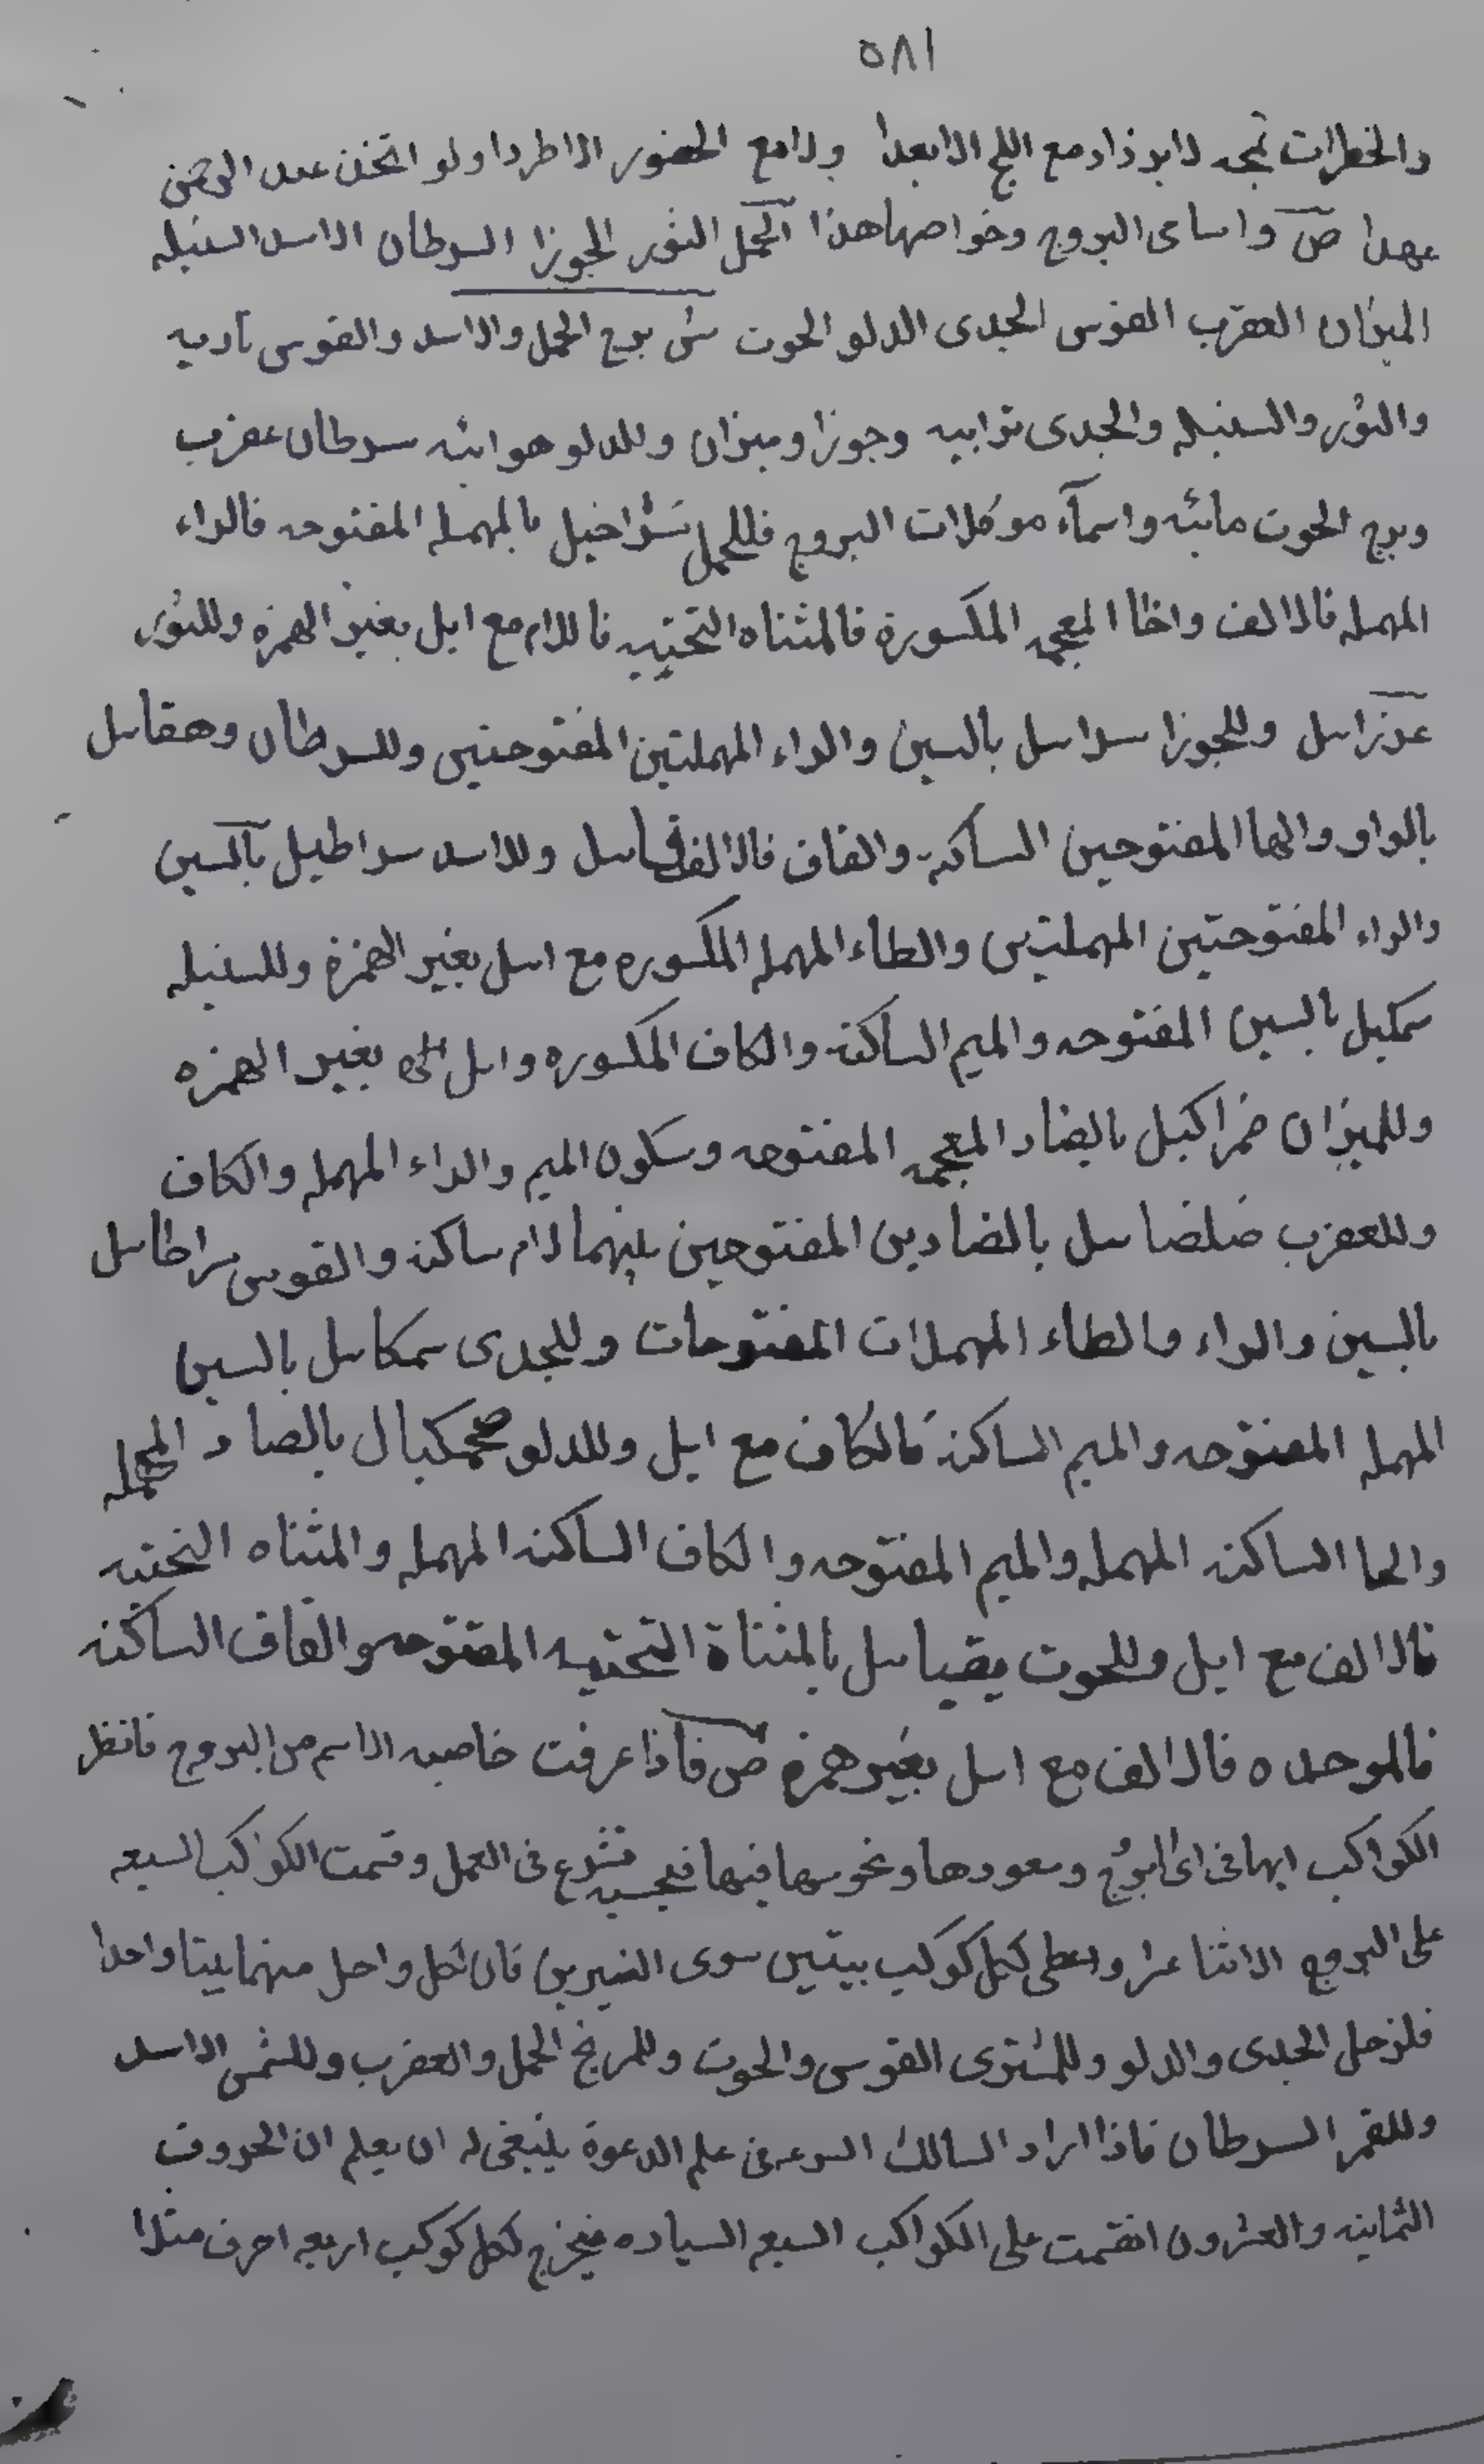 ٥٨١
والخطرات تجه لا يزداد مع اللج الا بعدا ولا مع الحضور الا طردا ولو اتخذ عند الرحمن
عهدا ص واسامى البروج وخواصها هذا الحمل الثور الجوزا السرطان الاسد السنبله
الميزان العقرب القوس الجدى الدلو الحوت ش برج الحمل والاسد والقوس ناريه
والثور والسنبله والجدى ترابيه وجوزا وميزان وللدلو هوائيه سرطان عقرب
وبرج الحوت مائيه واسمآء موكلات البروج فللحمل سراخيل بالمهمله المفتوحه فالراء
المهمله فالالف واخا المعجمه المكسورة فالمثناه التحتيه فاللام مع ايل بغير الهمزه وللثور
عزرايل وللجوزا سرايل بالسين والراء المهملتين المفتوحتين وللسرطان وهقايل
بالواو والها المفتوحين الساكنه والقاف فالالف قايل وللاسد سراطيل بالسين
والراء المفتوحتين المهملتين والطاء المهمله المكسوره مع ايل بغير الهمزة وللسنبله
سمكيل بالسين المفتوحه والميم الساكنه والكاف المكسوره وايل بغير الهمزه
وللميزان ضمراكيل بالضاد المعجمه المفتوحه وسكون الميم والراء المهمله والكاف
وللعقرب ضلضايل بالضادين المفتوحين بينهما لام ساكنه والقوس سراطايل
بالسين والراء والطاء المهملات المفتوحات وللجدى سمكايل بالسين
المهمله المفتوحه والميم الساكنه فالكاف مع ايل وللدلو صحمكيال بالصاد المهمله
والحا الساكنه المهمله والميم المفتوحه والكاف الساكنه المهمله والمثناه التحتيه
فالالف مع ايل وللحوت يقيايل بالمثناة التحتيه المفتوحه والقاف الساكنه
فالموحده فالالف مع ايل بغير همزة ص فاذا عرفت خاصيه الاسم من البروج فانظر
الكواكب ايها فى اى البروج وسعودها ونحوسها فيها فبحسبه تشرع فى العمل وقسمت الكواكب السبعه
على البروج الاثنا عشر واعطى لكل كوكب بيتين سوى النيرين فان لكل واحد منهما بيتا واحدا
فلزحل الجدى والدلو وللمشترى القوس والحوت وللمريخ الحمل والعقرب وللشمس الاسد
وللقمر السرطان فاذا اراد السالك الشرعه فى علم الدعوة ينبغى له ان يعلم ان الحروف
الثمانيه والعشرون انقسمت على الكواكب السبعه السياره فيخرج لكل كوكب اربعه احرف مثلا